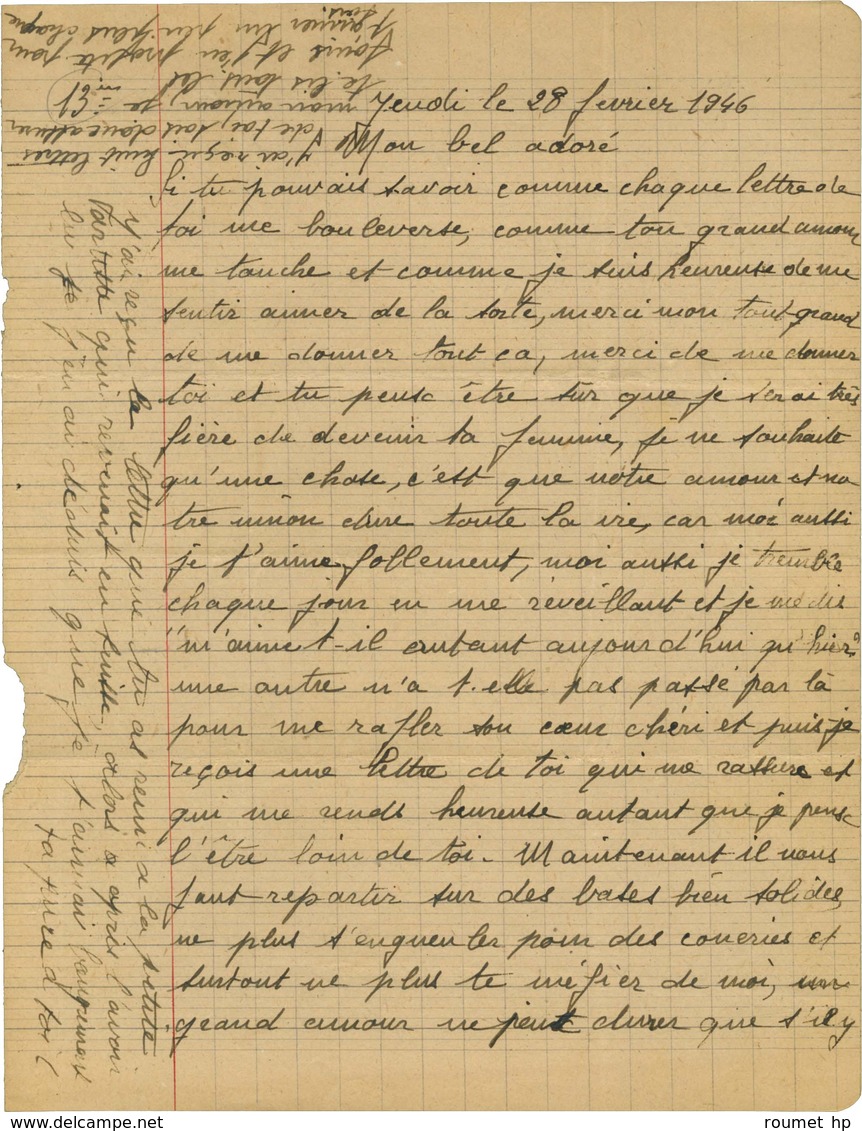 Jeudi le 28 fevrier 1946
Mon bel adoré
Si tu pouvais savoir comme chaque lettre de
toi me bouleverse, comme ton grand amour
me touche et comme je suis heureuse de me
sentir aimer de la sorte, merci mon tout grand
de me donner tout ça, merci de me donner
toi et tu peux être sûr que je serai très
fière de devenir ta femme, je ne souhaite
qu'une chose, c'est que notre amour et no
tre union dure toute la vie, car moi aussi
je t'aime follement, moi aussi je tremble
chaque jour en me réveillant et je me dis
"m'aime t-il autant aujourd'hui qu'hier?
une autre n'a t-elle pas passé par là
pour me rafler son cœur chéri et puis je
reçois une lettre de toi qui me rassure et
qui me rends heureuse autant que je peux
l'être loin de toi. Maintenant il nous
faut repartir sur des bases bien solides,
ne plus s'engueuler pour des coneries et
surtout ne plus te méfier de moi, un
grand amour ne peut durer que s'il y
J'ai reçu la lettre que tu as remi a la petite
qui revenait en Suisse, alors a après l'avoir
lu je j'en ai déduis que je t'aimai
J'ai reçu huit lettres
de toi, sois donc
mon amour, je
te lis tous les
jours et j'en profite pour
un plus chaque